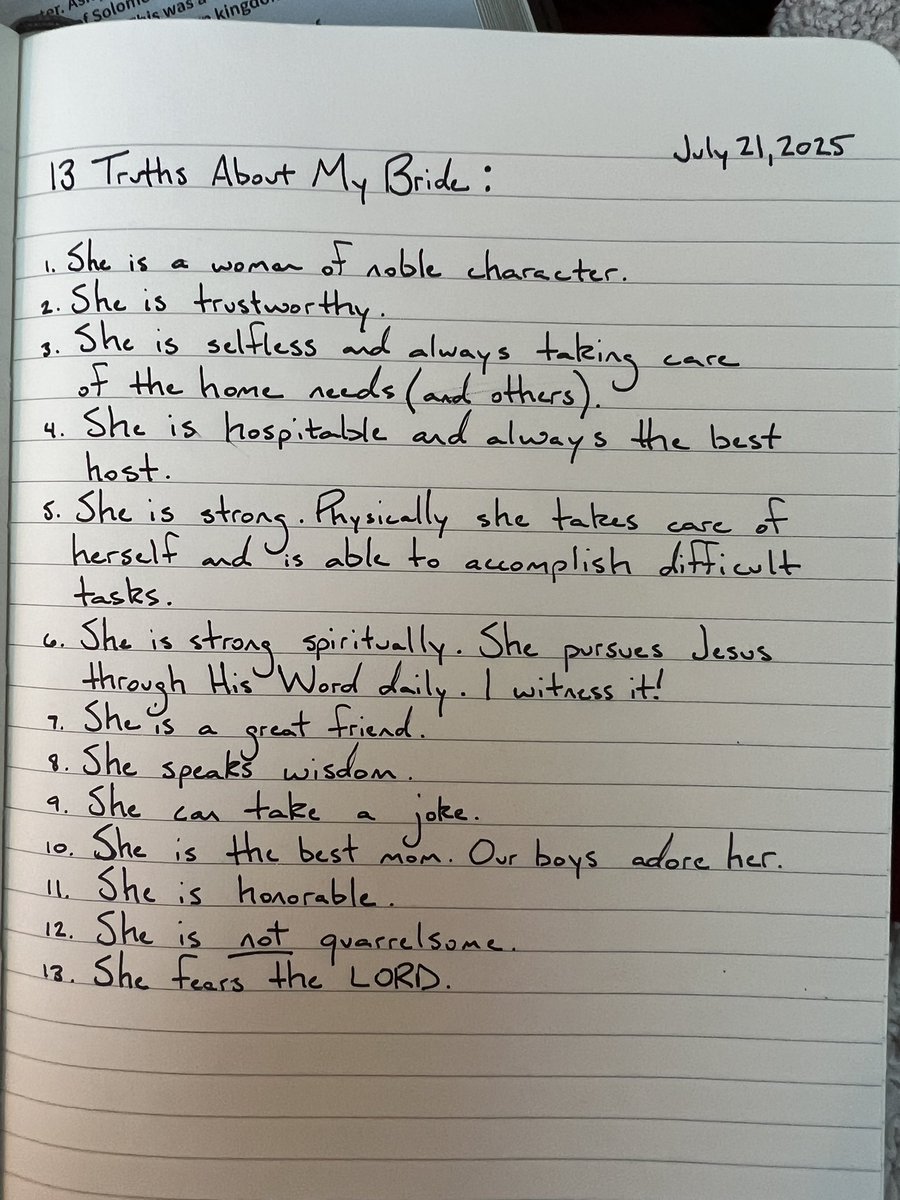 ter. As
f Solom
his was a
kingdo
July 21, 2025
13 Truths About My Bride:
1. She is a woman of noble character.
2. She is trustworthy.
3. She is selfless and always taking care
of the home needs (and others).
4. She is hospitable and always the best
host.
5. She is strong. Physically she takes care of
herself and is able to accomplish difficult
tasks.
6. She is strong spiritually. She pursues Jesus
through His Word daily. I witness it!
7. She is a great friend.
8. She speaks wisdom.
9. She can take a joke.
10. She is the best mom. Our boys adore her.
11. She is honorable.
12. She is not quarrelsome.
13. She fears the LORD.